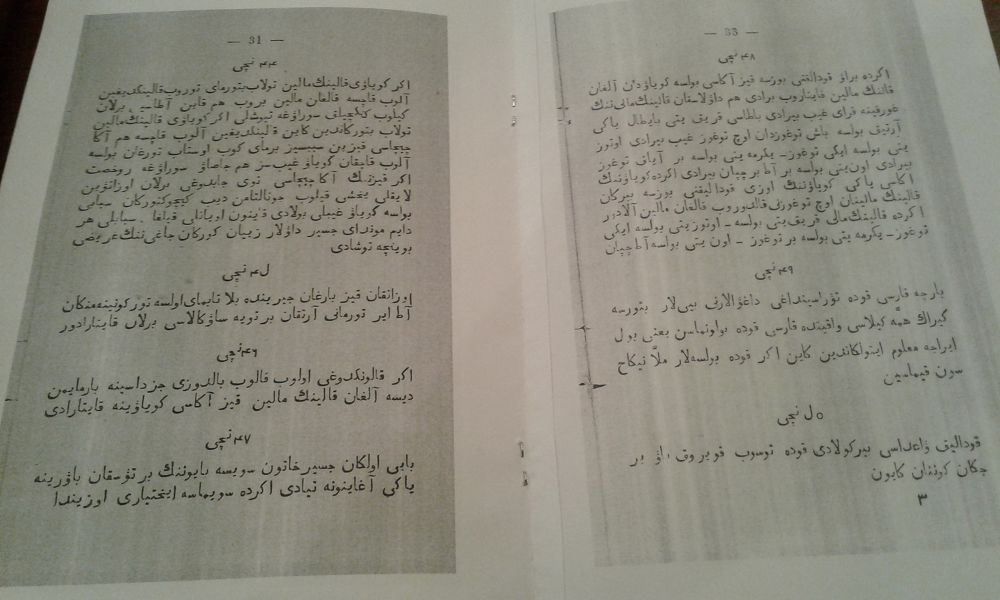 — 31 —
۴۴ نچی
اكر كویاوٛی قالینك مالین تولاب بتورمای توروب قالیندیغین
آلوب قاچسه قالغان مالین بروب هم قاین آطاسی برلان
كیلوب سوراوٛغه تیوشلی اكر كویاوٛی قالینك مالین
تولاب بتوركاندین كاین قالیندیغین آلوب قاچسه هم آكا
چیچاسی قیزین سیبسیز برمای كوب اوستاب تورغان بولسه
آلوب قاچقان كویاوٛ غیب سز هم سوراوٛغه روخصت
اكر قیزنینك آكا چیچاسی توی برلان اوزاتٛورین
لایقلی یخشی قیلوب دیب سیابی
بولسه كویاوٛ غیبلی بولادی قیلغا سیابلی هر
دایم موندای جسیر داوٛلار زیبان كوركان
بوینچه توشادی
ل۴ نچی
اوزاتقان قیز بارغان جیرینده بلا تابمای اولسه تور
آط ایر تورمانی آرتقان بر تویه ساوٛكالاسی برلان قایتارادور
۴۶ نچی
اكر قالوندوغی اولوب قالوب بالدوزی جزداسینه بارمایمن
دیسه آلغان قالینك مالین قیز آكاسی كویاوٛینه قایتارادی
۴۷ نچی
بایی اولكان جسیر خاتون سویسه بایوننك بر توٛسقان باوٛرینه
یاكی آغاینونه تیادی اكرده سویماسه ایختیاری اوزیندا
— 33 —
۴۸ نچی
اكرده براوٛ قودالقنی بوزسه قیز آكاسی بولسه كویاوٛدن آلغان
قالننك مالین قایتاروب برادی هم داوٛلاسقان قالینك مالی ننك
غورقینه قرای غیب بیرادی باطاسی قریق یتی بایطال یاكی
آرتیق بولسه باش توغوزدان اوچ توغوز غیب بیرادی اوتوز
یتی بولسه ایكی توغوز – یكرمه یتی بولسه بر آیاق توغوز
بیرادی اون یتی بولسه بر آط بر چپان بیرادی اكرده كویاوٛننك
آكاسی یاكی كویاوٛننك اوزی قودالیقنی بوزسه بیركان
قالینك مالینان اوچ توغوزنی قالدوروب قالغان مالین آلادور
اكرده قالینك مالی قریق یتی بولسه – اوتوز یتی بولسه ایكی
توغوز – یكرمه یتی بولسه بر توغوز – اون یتی بولسه آط چپان
۴۹ نچی
بارچه قارسی قوده توٛراسینداغی داغوٛالارنی بیی لار بتورسه
كیراك همّه كیلاسی واقینده قارسی قوده بواونماسن یعنی بول
ایراجه معلوم ایتولكاندین كاین اكر قوده بولسه لار ملاّ نیكاح
سون قیماسین
۵ل نچی
قودالیق واعداسی بیركولادی قوده توسوب قویروق باوٛ بر
چكان كونٛنان كایون
۳